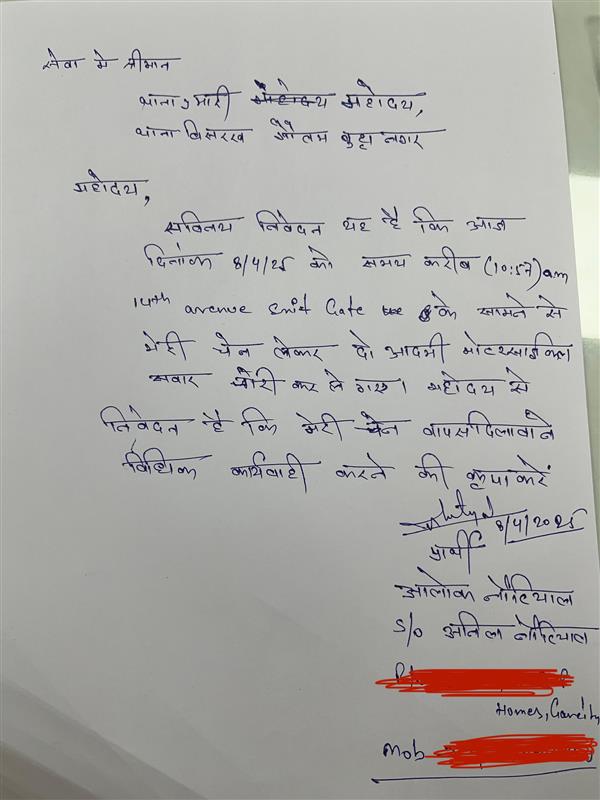 सेवा मे श्रीमान
थाना प्रभारी महोदय,
थाना बिसरख गौतम बुद्ध नगर
महोदय,
सविनय निवेदन यह है कि आज
दिनांक 8/4/25 को समय करीब (10:57) am
14th avenue Exit Gate के सामने से
मेरी चेन लेकर दो आदमी मोटरसाइकिल
सवार चोरी कर ले गए। महोदय से
निवेदन है कि मेरी चेन वापस दिलावाने
विधिक कार्यवाही करने की कृपा करें
8/4/2025
प्रार्थी
आलोक नौटियाल
S/o अनिल नौटियाल
Homes, Gaurcity
Mob